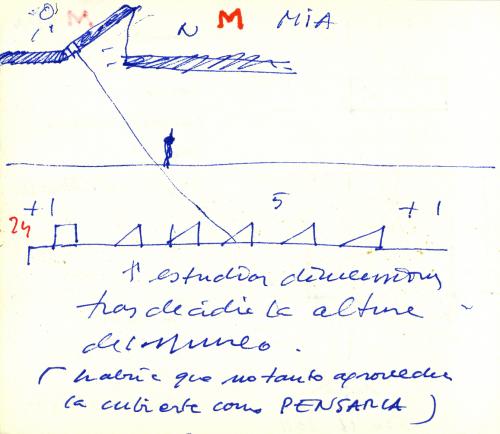 M N M MIA
+1 5 +1
24
estudiar dimensiones
tras decidir la altura
del Museo.
(habría que no tanto aprovechar
la cubierta como PENSARLA)